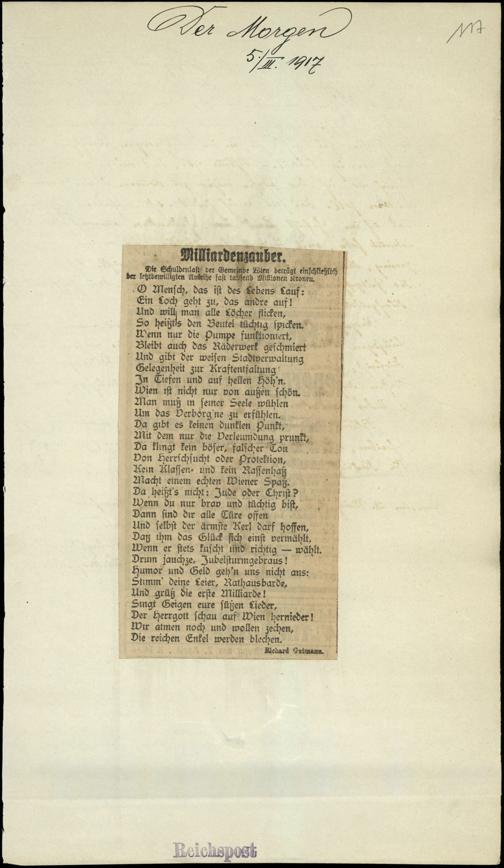 Der Morgen
5/III. 1917
117
Milliardenzauber.
Die Schuldenlast der Gemeinde Wien beträgt einschließlich
der letztbewilligten Anleihe fast tausend Millionen Kronen.
O Mensch, das ist des Lebens Lauf:
Ein Loch geht zu, das andre auf!
Und will man alle Löcher flicken,
So heißt's den Beutel tüchtig spicken.
Wenn nur die Pumpe funktioniert,
Bleibt auch das Räderwerk geschmiert
Und gibt der weisen Stadtverwaltung
Gelegenheit zur Kraftentfaltung
In Tiefen und auf hellen Höh'n.
Wien ist nicht nur von außen schön.
Man muß in seiner Seele wühlen
Um das Verborg'ne zu erfühlen.
Da gibt es keinen dunklen Punkt,
Mit dem nur die Verleumdung prunkt,
Da klingt kein böser, falscher Ton
Von Herrschsucht oder Protektion,
Kein Klassen- und kein Rassenhaß
Macht einem echten Wiener Spaß.
Da heißt's nicht: Jude oder Christ?
Wenn du nur brav und tüchtig bist,
Dann sind dir alle Türe offen
Und selbst der ärmste Kerl darf hoffen,
Daß ihm das Glück sich einst vermählt,
Wenn er stets kuscht und richtig — wählt.
Drum jauchze, Jubelsturmgebraus!
Humor und Geld geh'n uns nicht aus:
Stimm' deine Leier, Rathausbarde,
Und grüß die erste Milliarde!
Singt Geigen eure süßen Lieder,
Der Herrgott schau auf Wien hernieder!
Wir atmen noch und wollen zechen,
Die reichen Enkel werden blechen.
Richard Gutmann.
Reichspost